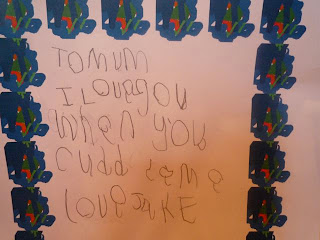 TO MUM
I LOVE YOU
When you
Cudd le me
LOVE JAKE